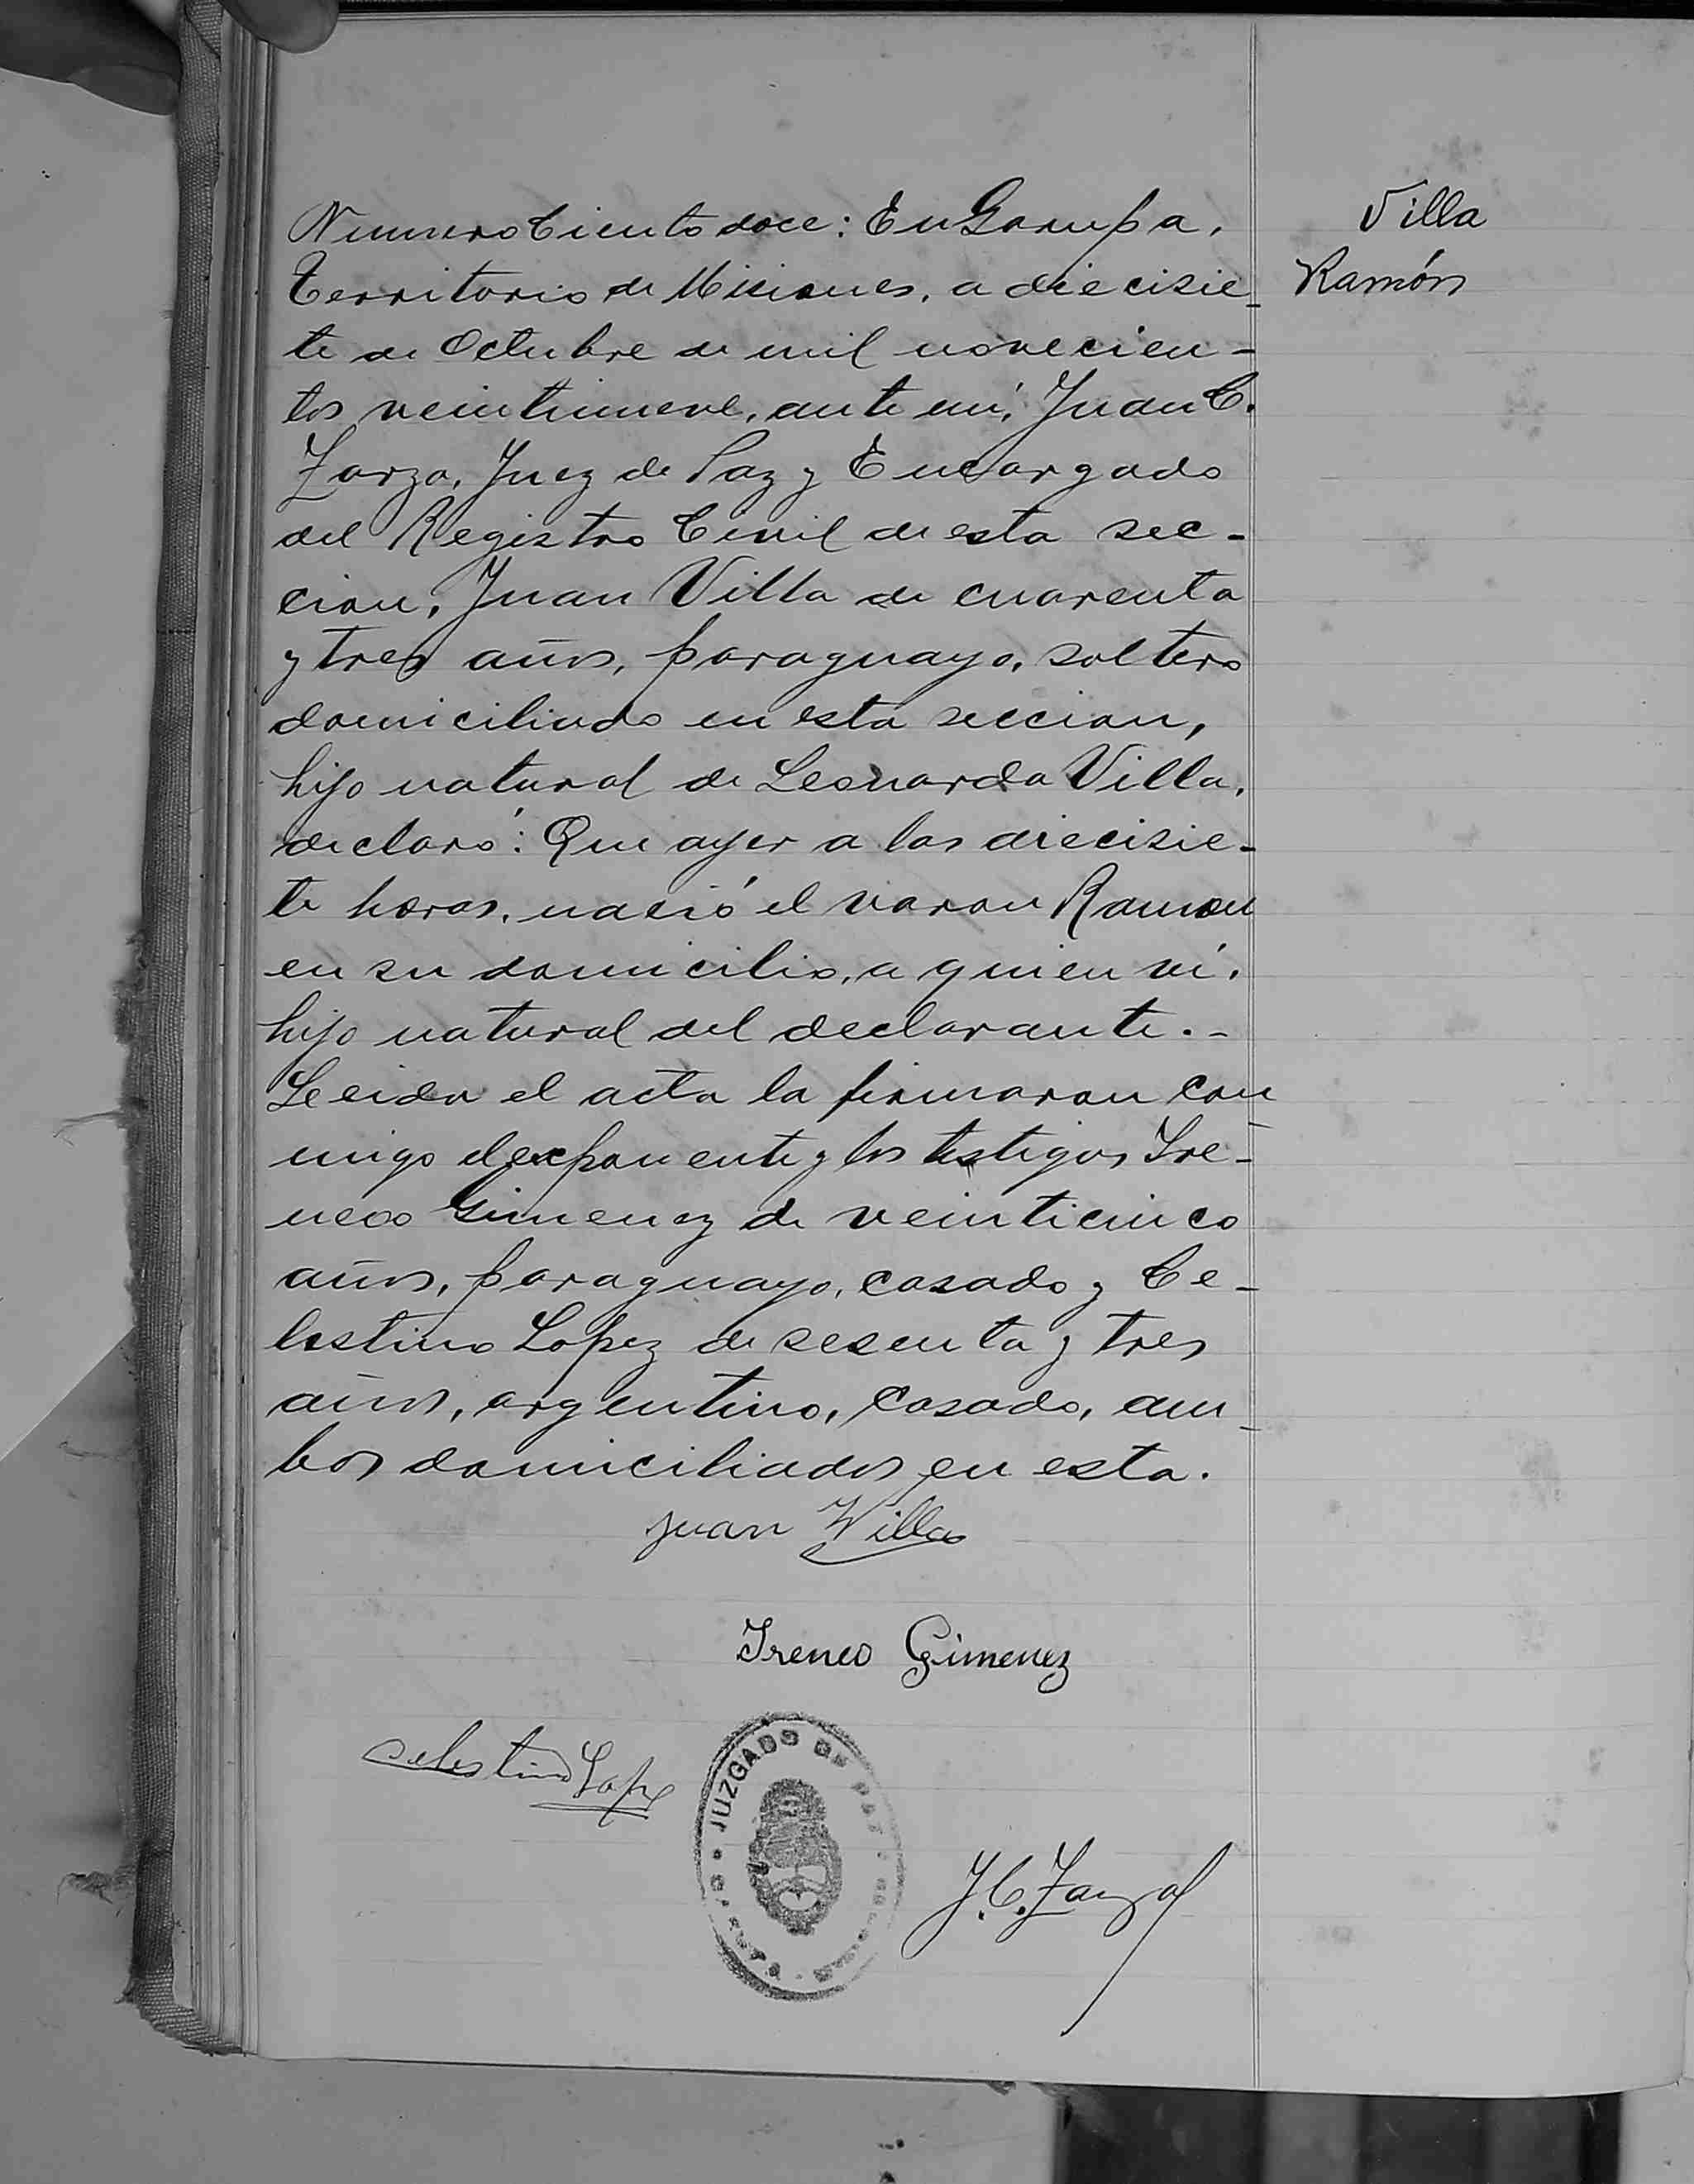 Numero Ciento doce: En Garupa,
Territorio de Misiones, a diecisie_
te de Octubre de mil novecien-
tos veintinueve, ante mí, Juan C.
Zarza, Juez de Paz y Encargado
del Registro Civil de esta sec-
cion, Juan Villa de cuarenta
y tres años, paraguayo, soltero
domiciliado en esta seccion,
hijo natural de Leonarda Villa,
declaró: Que ayer a las diecisie-
te horas, nació el varon Ramon
en su domicilio, a quien ví,
hijo natural del declarante.-
Leida el acta la firmaron con_
migo el exponente y los testigos Ire-
neo Gimenez de veinticinco
años, paraguayo, casado y Ce-
lestino Lopez de sesenta y tres
años, argentino, casado, am_
bos domiciliados en esta.
Juan Villa
Ireneo Gimenez
Celestino Lopez
JUZGADO DE PAZ
J.C. Zarza
Villa
Ramón